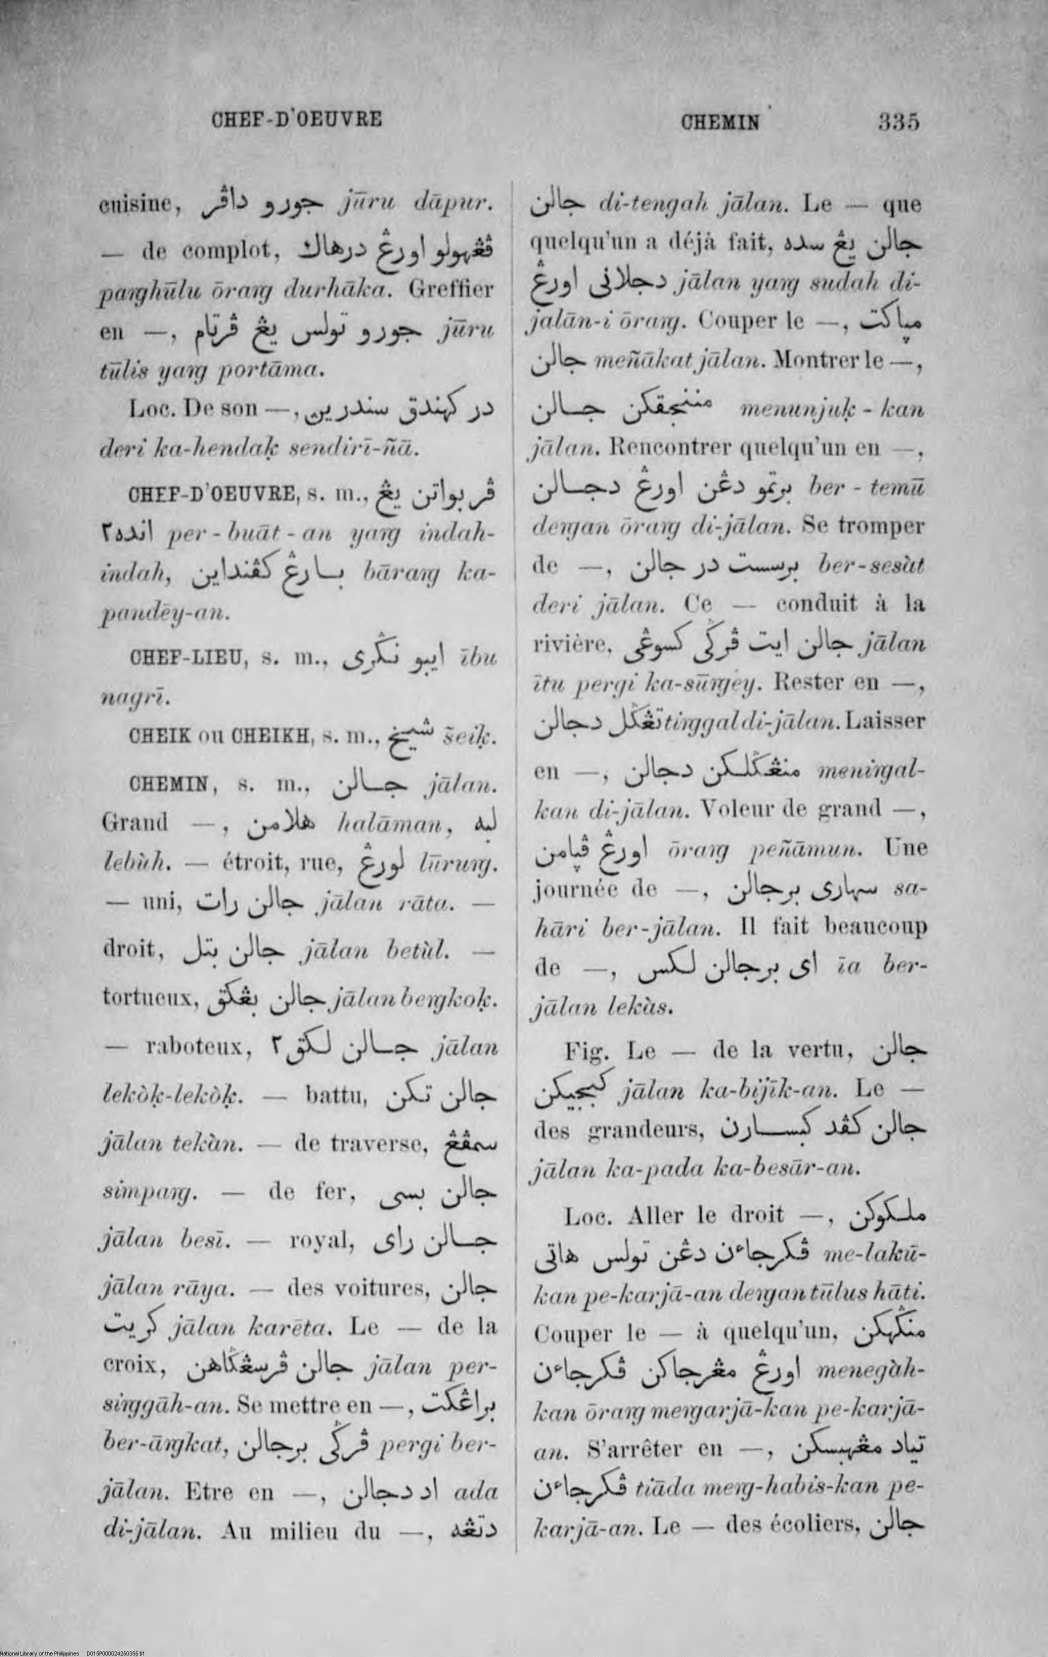 CHEF-D'OEUVRE
CHEMIN 335
cuisine, جورو داڤر jūru dāpur.
— de complot, ڤڠهولو اورڠ درهاك
paŋghūlu ōraŋ durhāka. Greffier
en —, جورو تولس يڠ ڤرتام jūru
tūlis yaŋ portāma.
Loc. De son —, در كهندق سندرين
deri ka-hendaḳ sendirī-ñā.
CHEF-D'OEUVRE, s. m., ڤر بواتن يڠ
انده٢ per-buāt-an yaŋ indah-
indah, بارڠ كڤنداين bāraŋ ka-
pandēy-an.
CHEF-LIEU, s. m., ايبو نڬري ību
nagrī.
CHEIK ou CHEIKH, s. m., شيخ šeiḳ.
CHEMIN, s. m., جالن jālan.
Grand —, هلامن halāman, لبه
lebùh. — étroit, rue, لورڠ lūruŋ.
— uni, جالن رات jālan rāta. —
droit, جالن بتل jālan betùl. —
tortueux, جالن بڠكق jālan beŋkoḳ.
— raboteux, جالن لكق٢ jālan
lekòḳ-lekòḳ. — battu, جالن تكن
jālan tekàn. — de traverse, سمڤڠ
simpaŋ. — de fer, جالن بسى
jālan besī. — royal, جالن راى
jālan rāya. — des voitures, جالن
كريت jālan karēta. Le — de la
croix, جالن ڤرسڠڬاهن jālan per-
siŋgāh-an. Se mettre en —, براڠكت
ber-āŋkat, ڤرڬى برجالن pergi ber-
jālan. Etre en —, اد دجالن ada
di-jālan. Au milieu du —, دتڠه
جالن di-tengah jālan. Le — que
quelqu'un a déjà fait, جالن يڠ سده
دجلانى اورڠ jālan yaŋ sudah di-
jalān-i ōraŋ. Couper le —, مپاكت
جالن meñākat jālan. Montrer le —,
مننجقكن جالن menunjuḳ-kan
jālan. Rencontrer quelqu'un en —,
برتمو دڠن اورڠ دجالن ber-temū
deŋan ōraŋ di-jālan. Se tromper
de —, برسست در جالن ber-sesàt
deri jālan. Ce — conduit à la
rivière, جالن ايت ڤرڬى كسوڠى jālan
ītu pergi ka-sūŋey. Rester en —,
تڠڬل دجالن tiŋgal di-jālan. Laisser
en —, منڠڬلكن دجالن meniŋgal-
kan di-jālan. Voleur de grand —,
اورڠ ڤپامن ōraŋ peñāmun. Une
journée de —, سهارى برجالن sa-
hāri ber-jālan. Il fait beaucoup
de —, اى برجالن لكس īa ber-
jālan lekàs.
Fig. Le — de la vertu, جالن
كبجيكن jālan ka-bijīk-an. Le —
des grandeurs, جالن كڤد كبسارن
jālan ka-pada ka-besār-an.
Loc. Aller le droit —, ملكوكن
ڤكرجاءن دڠن تولس هاتى me-lakū-
kan pe-karjā-an deŋan tūlus hāti.
Couper le — à quelqu'un, منڬهكن
اورڠ مڠرجاكن ڤكرجاءن menegàh-
kan ōraŋ meŋarjā-kan pe-karjā-
an. S'arrêter en —, تياد مڠهبسكن
ڤكرجاءن tiāda meŋ-habis-kan pe-
karjā-an. Le — des écoliers, جالن
National Library of the Philippines